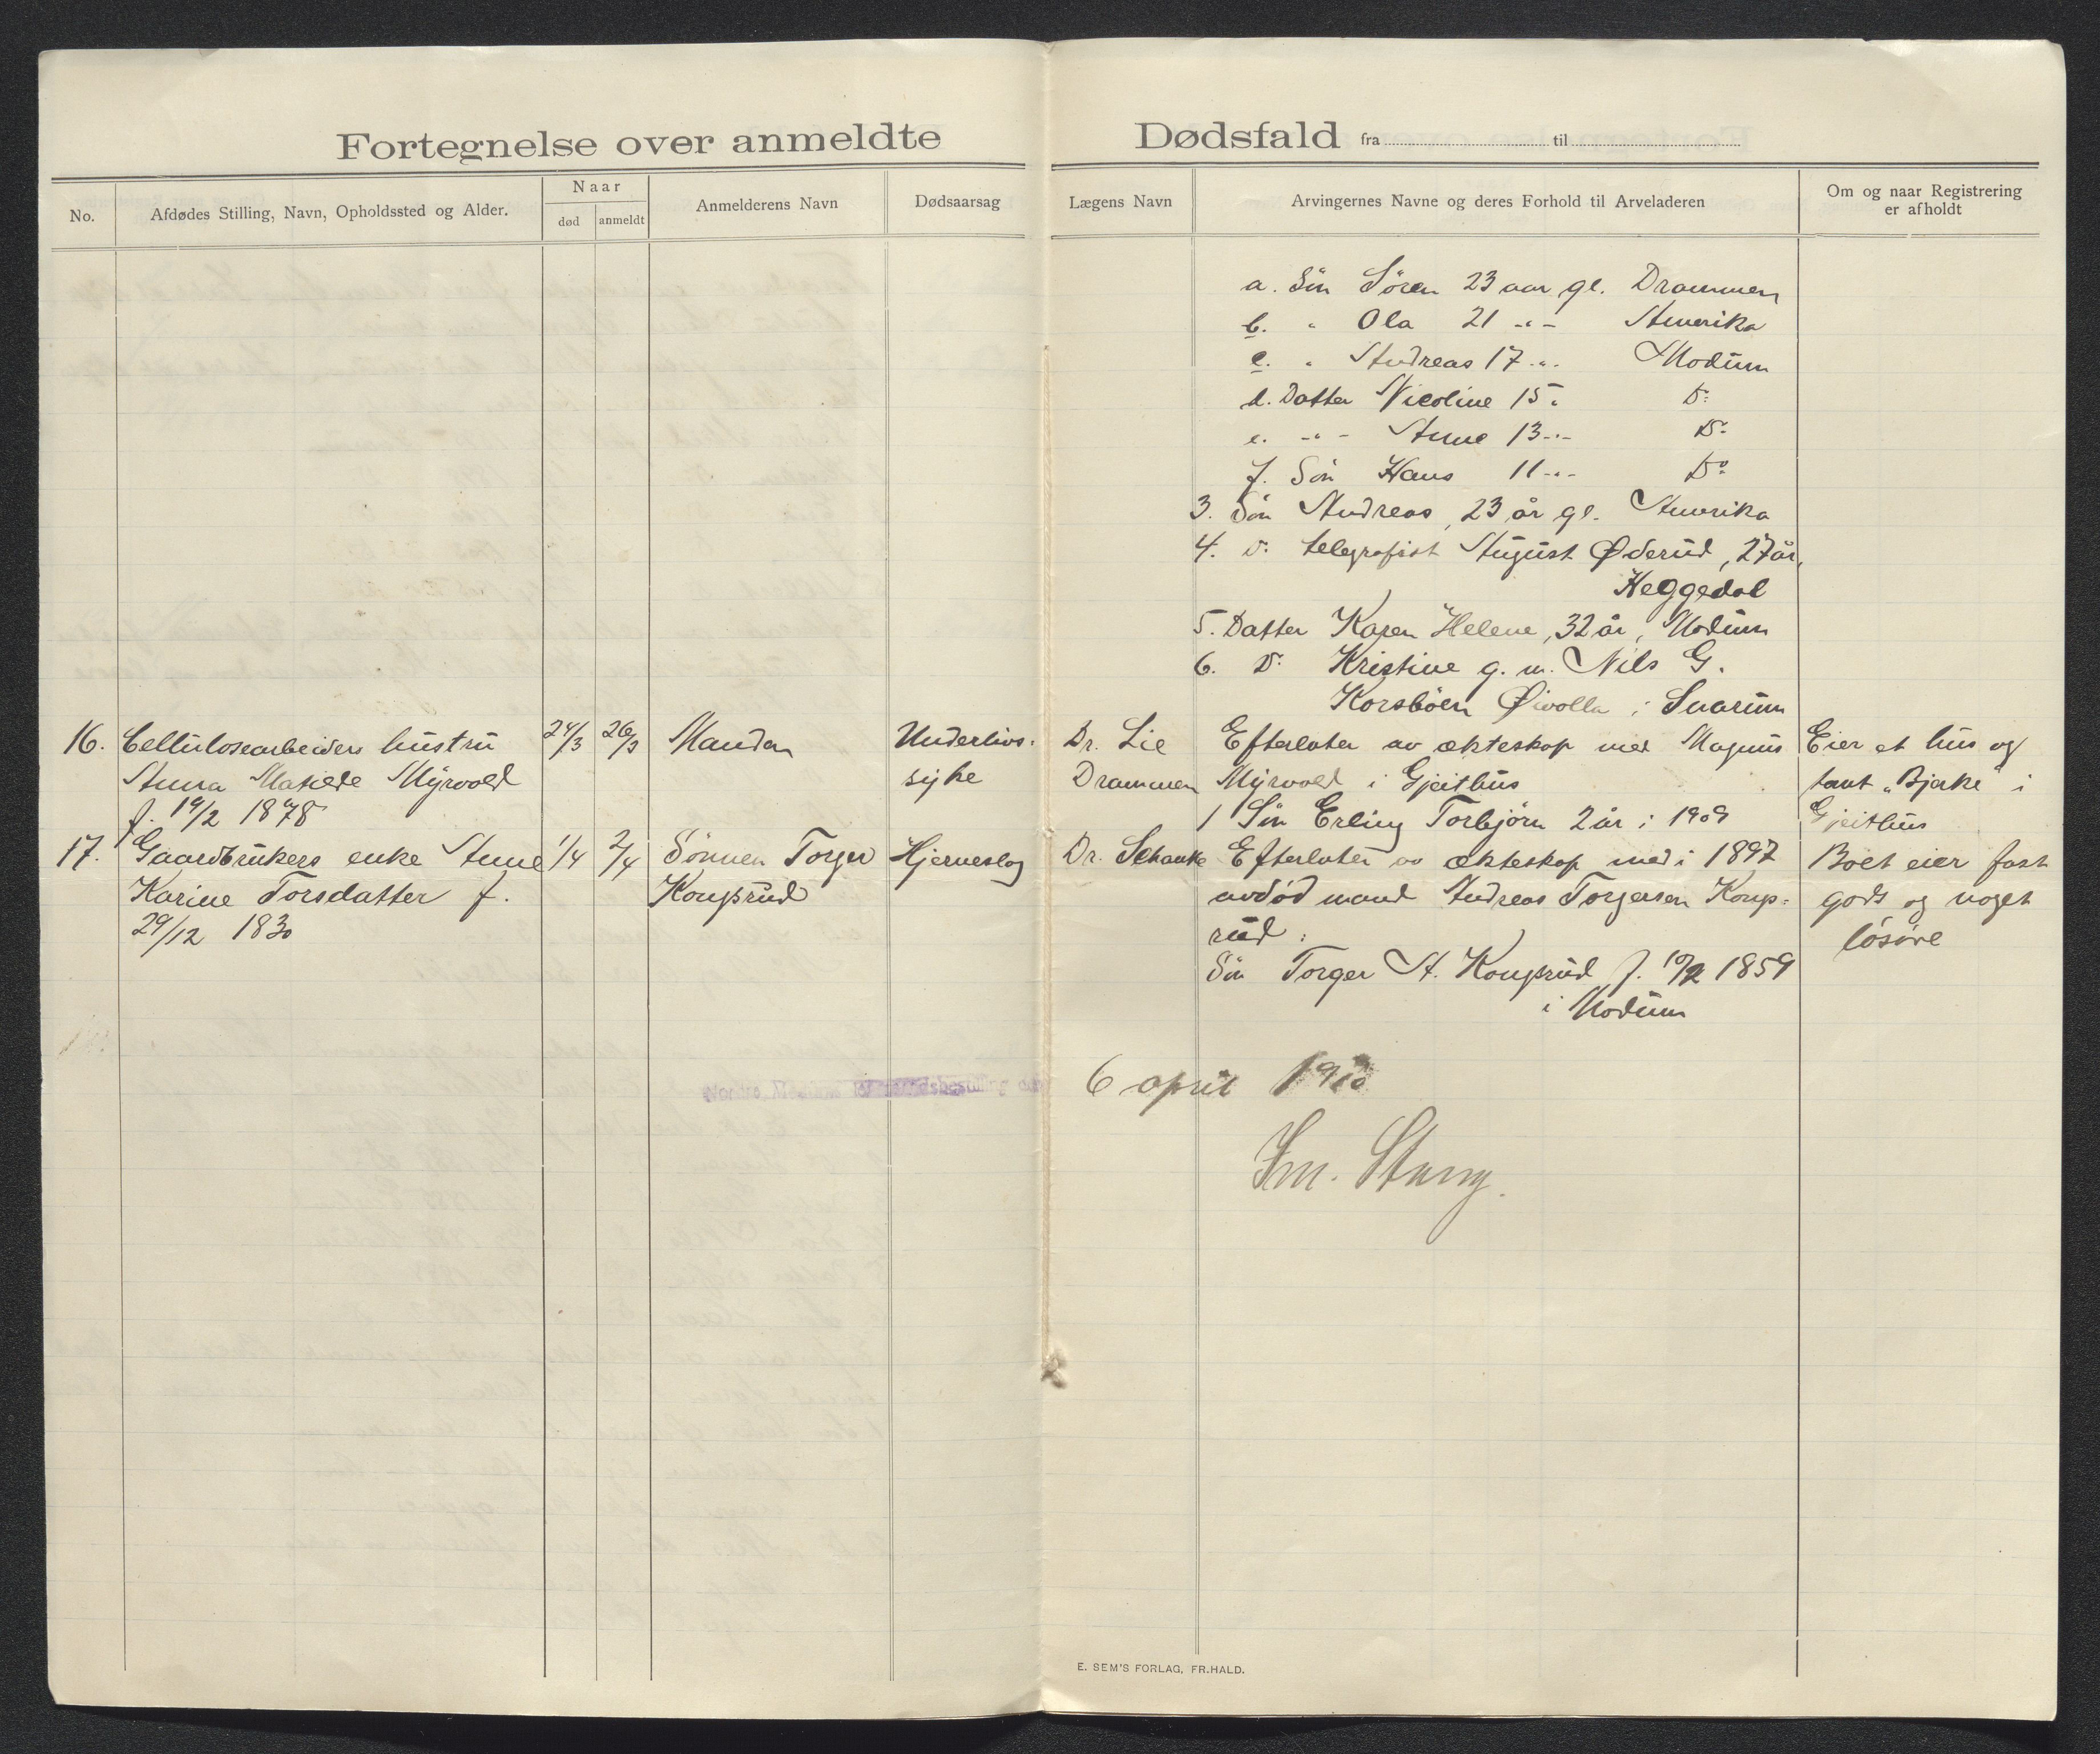 Fortegnelse over anmeldte Dødsfald fra til
No.
Afdødes Stilling, Navn, Opholdssted og Alder.
Naar
død
anmeldt
Anmelderens Navn
Dødsaarsag
Lægens Navn
Arvingernes Navne og deres Forhold til Arveladeren
Om og naar Registrering
er afholdt
a. Sön Sören 23 aar gl. Drammen
b. " Ola 21 -"- Amerika
c. " Andreas 17 -"- Modum
d. Datter Nicoline 15 " Do
e. -"- Anne 13 -"- Do
f. Sön Hans 11 -"- Do
3. Sön Andreas, 23 år gl. Amerika
4. Do telegrafist August Øderud, 27 år,
Heggedal
5. Datter Karen Helene, 32 år, Modum
6. Do Kristine g. m. Nils G.
Korsböen Øivolla i Snarum
16.
Cellulosearbeiders hustru
Anna Matilde Myrvold
f. 19/2 1878
24/3
26/3
Manden
Underlivs-
syke
Dr. Lie
Drammen
Efterlater av ekteskap med Magnus
Myrvold i Gjeithus
1 Sön Erling Torbjörn 2 år i 1909
Eier et hus og
tomt "Bjerke" i
Gjeithus
17.
Gaardbrukers enke Anne
Karine Torsdatter f.
29/12 1830
1/4
2/4
Sönnen Torger
Kongsrud
Hjerneslag
Dr. Schanke
Efterlater av ekteskap med i 1897
avdöd mand Andreas Torgersen Kongs-
rud:
Sön Torger A. Kongsrud f. 10/2 1859
i Modum
Boet eier fast
gods og noget
lösöre
Nordre Modums lensmandsbestilling den 6 april 1910
Fm. Stang.
E. SEM'S FORLAG, FR.HALD.